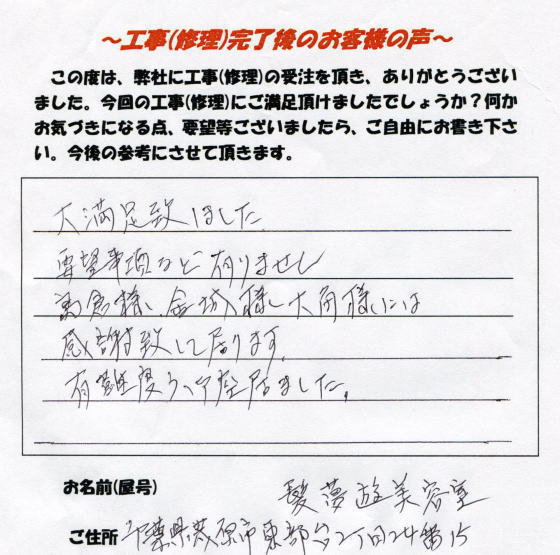 ～工事(修理)完了後のお客様の声～
この度は、弊社に工事(修理)の受注を頂き、ありがとうござい
ました。今回の工事(修理)にご満足頂けましたでしょうか？何か
お気づきになる点、要望等ございましたら、ご自由にお書き下さ
い。今後の参考にさせて頂きます。
大満足致しました
要望事項など有りません
様、金城様、大角様には
感謝致して居ります。
有難度う座居ました。
お名前(屋号) 髪夢遊美容室
ご住所 千葉県茂原市東部台2丁目24番15